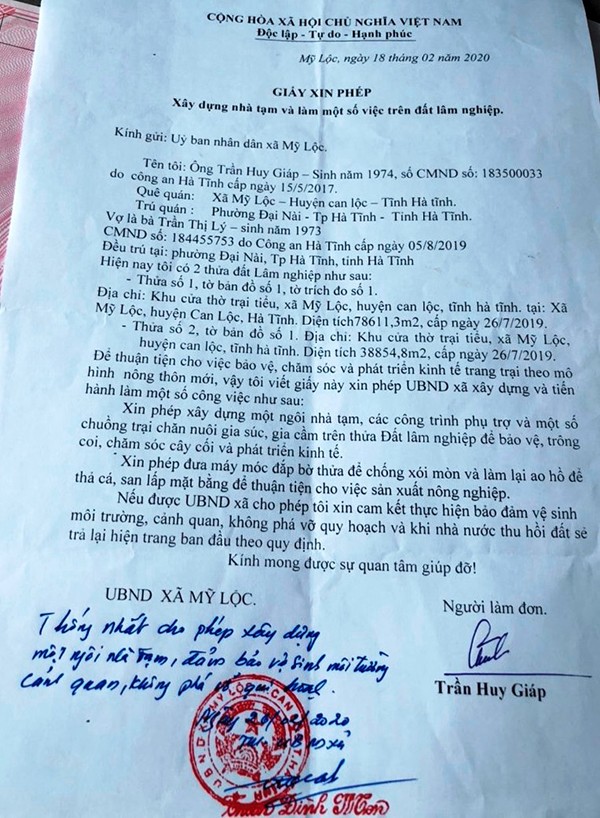 CỘNG HÒA XÃ HỘI CHỦ NGHĨA VIỆT NAM
Độc lập - Tự do - Hạnh phúc
Mỹ Lộc, ngày 18 tháng 02 năm 2020
GIẤY XIN PHÉP
Xây dựng nhà tạm và làm một số việc trên đất lâm nghiệp.
Kính gửi: Uỷ ban nhân dân xã Mỹ Lộc.
Tên tôi: Ông Trần Huy Giáp – Sinh năm 1974, số CMND số: 183500033
do công an Hà Tĩnh cấp ngày 15/5/2017.
Quê quán: Xã Mỹ Lộc – Huyện can lộc – Tĩnh Hà tĩnh.
Trú quán : Phường Đại Nài - Tp Hà Tĩnh - Tinh Hà Tĩnh.
Vợ là bà Trần Thị Lý – sinh năm 1973
CMND số: 184455753 do Công an Hà Tĩnh cấp ngày 05/8/2019
Đều trú tại: phường Đại Nài, Tp Hà Tĩnh, tỉnh Hà Tĩnh
Hiện nay tôi có 2 thửa đất Lâm nghiệp như sau:
- Thửa số 1, tờ bản đồ số 1, tờ trích đo số 1.
Địa chỉ: Khu cửa thờ trại tiểu, xã Mỹ Lộc, huyện can lộc, tĩnh hà tĩnh. tại: Xã
Mỹ Lộc, huyện Can Lộc, Hà Tĩnh. Diện tích78611,3m2, cấp ngày 26/7/2019.
- Thửa số 2, tờ bản đồ số 1. Địa chỉ: Khu cửa thờ trại tiểu, xã Mỹ Lộc,
huyện can lộc, tĩnh hà tĩnh. Diện tích 38854,8m2, cấp ngày 26/7/2019.
Để thuận tiện cho việc bảo vệ, chăm sóc và phát triển kinh tế trang trại theo mô
hình nông thôn mới, vậy tôi viết giấy này xin phép UBND xã xây dựng và tiến
hành làm một số công việc như sau:
Xin phép xây dựng một ngôi nhà tạm, các công trình phụ trợ và một số
chuồng trại chăn nuôi gia súc, gia cầm trên thửa Đất lâm nghiệp để bảo vệ, trông
coi, chăm sóc cây cối và phát triển kinh tế.
Xin phép đưa máy móc đắp bờ thửa để chống xói mòn và làm lại ao hồ để
thả cá, san lấp mặt bằng để thuận tiện cho việc sản xuất nông nghiệp.
Nếu được UBND xã cho phép tôi xin cam kết thực hiện bảo đảm vệ sinh
môi trường, cảnh quan, không phá vỡ quy hoạch và khi nhà nước thu hồi đất sẻ
trả lại hiện trang ban đầu theo quy định.
Kính mong được sự quan tâm giúp đỡ!
UBND XÃ MỸ LỘC.
Người làm đơn.
Thống nhất cho phép xây dựng
một ngôi nhà tạm, đảm bảo vệ sinh môi trường
cảnh quan, không phá vỡ quy hoạch.
Ngày 20/02/2020
TM. UBND xã
Trần Huy Giáp